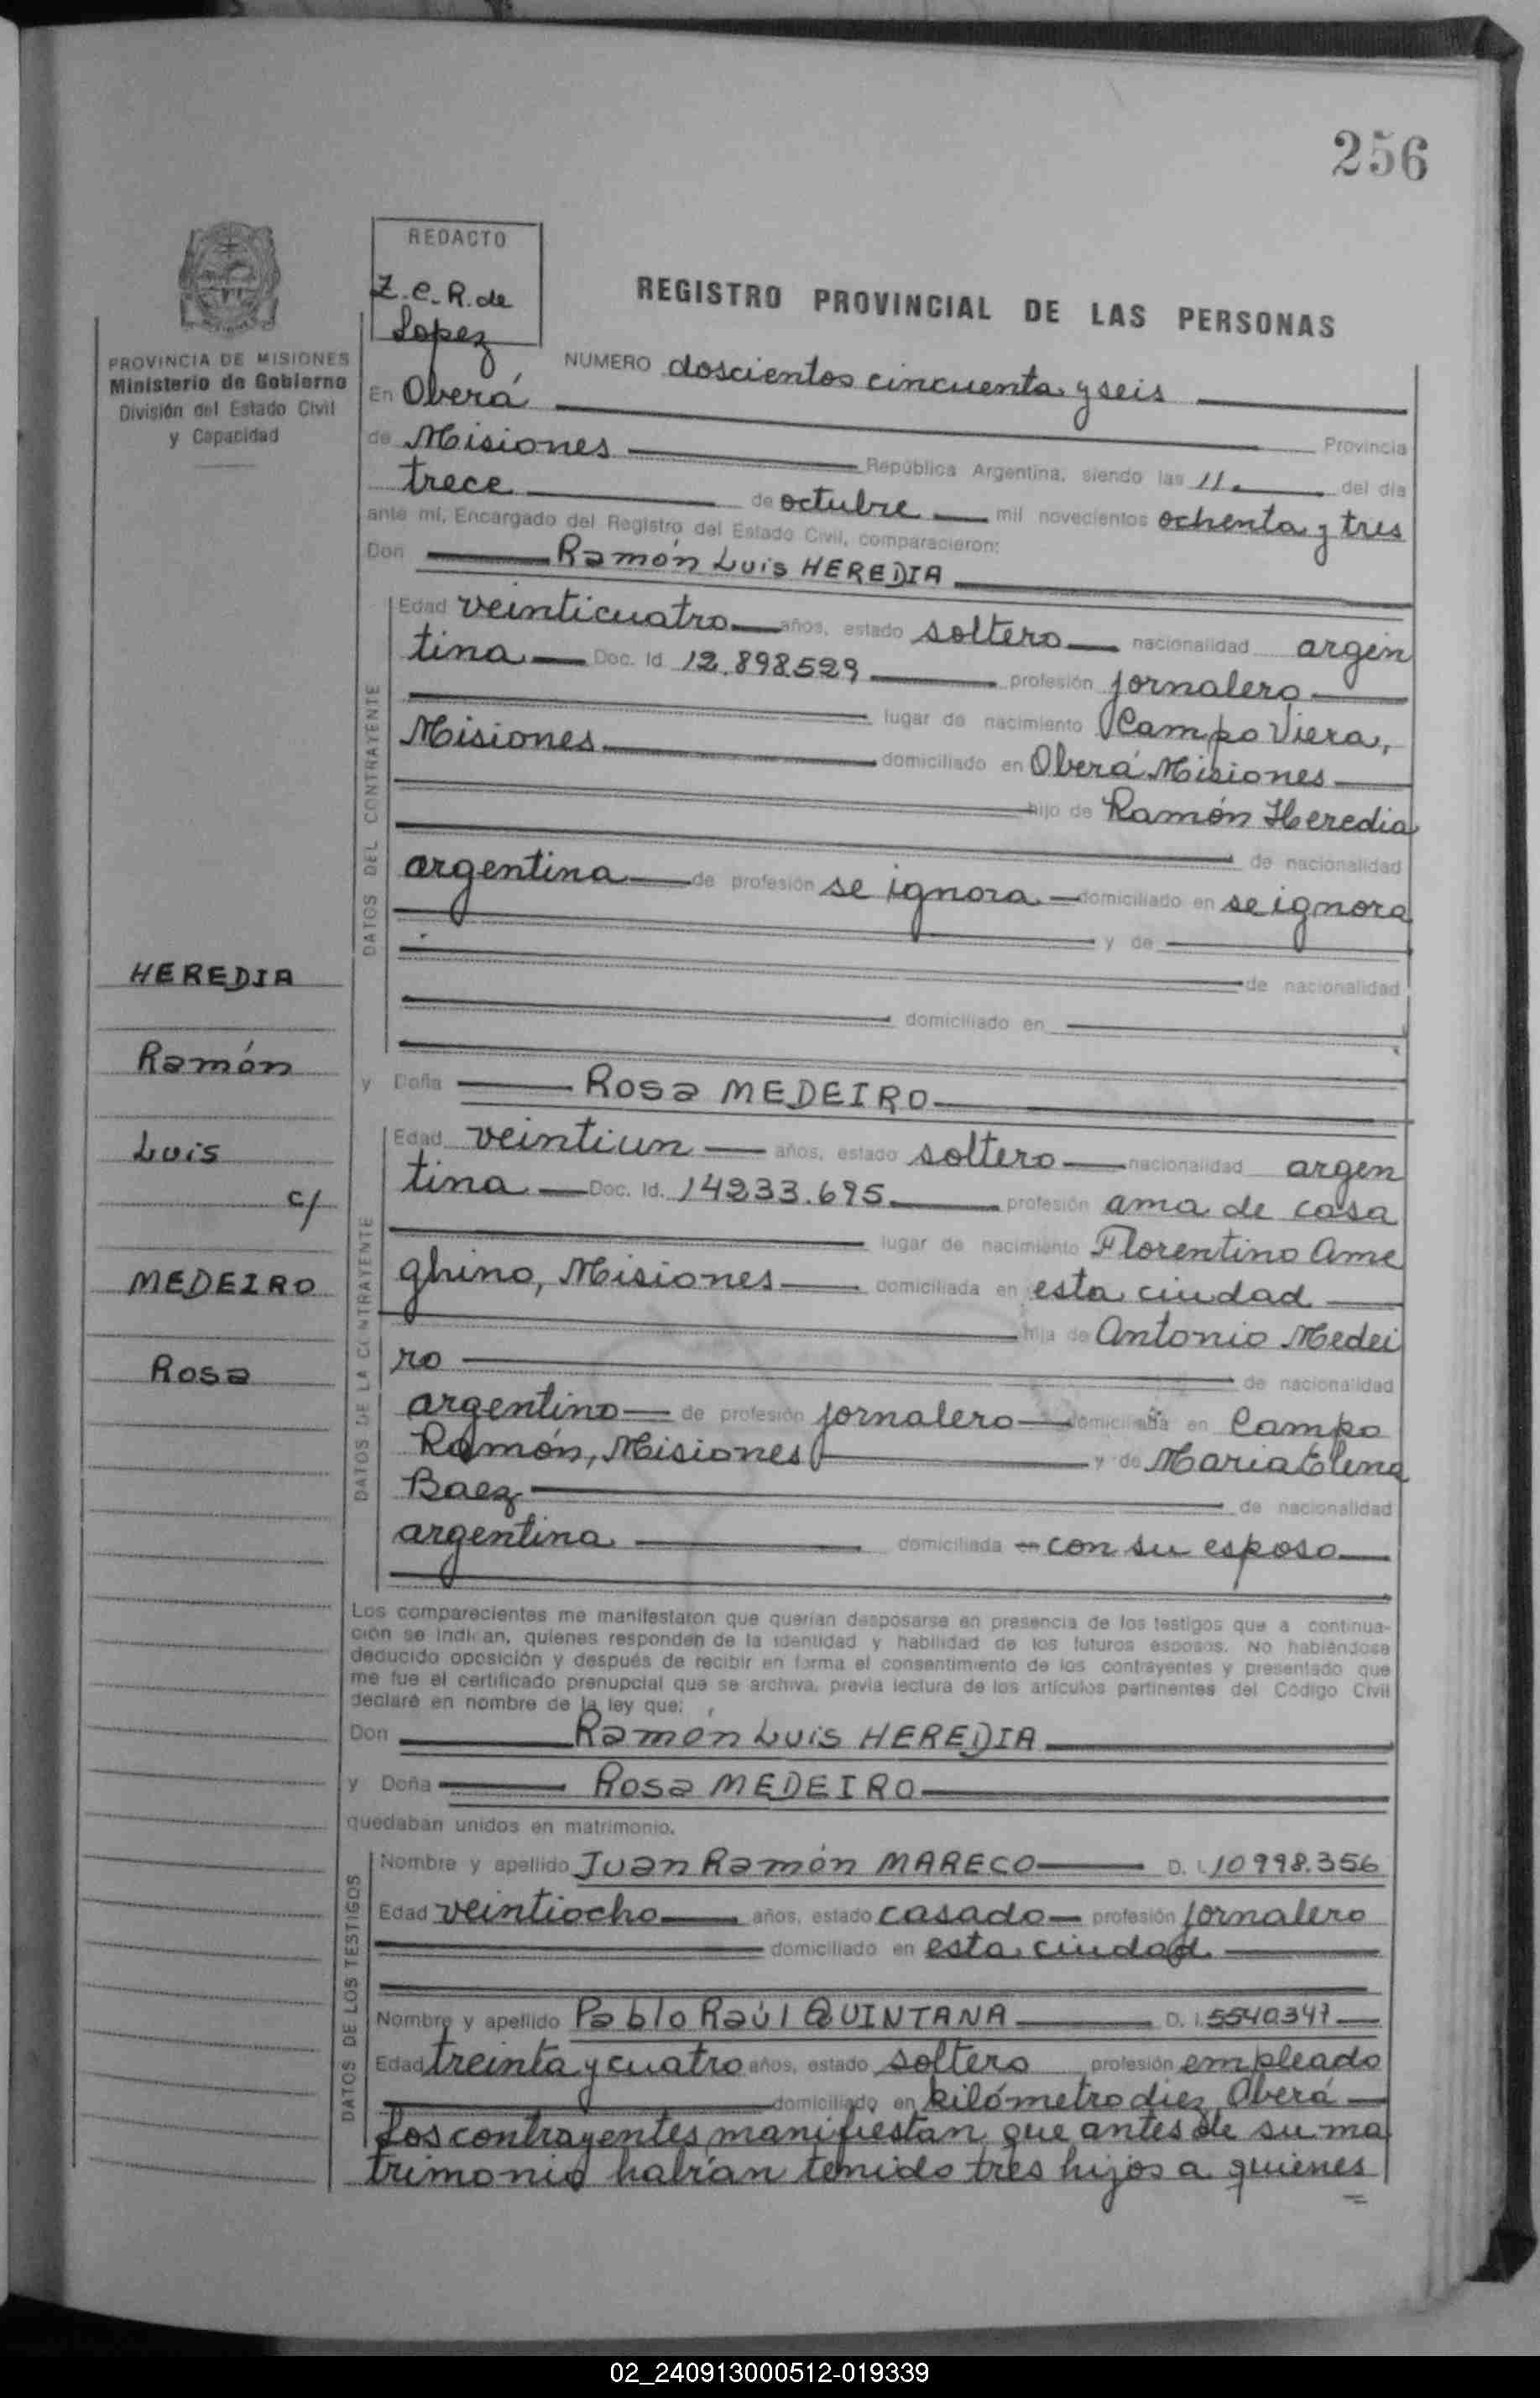 256
REDACTO
Z.C.R. de
Lopez
REGISTRO PROVINCIAL DE LAS PERSONAS
PROVINCIA DE MISIONES
Ministerio de Gobierno
División del Estado Civil
y Capacidad
NUMERO doscientos cincuenta y seis
En Oberá Provincia
de Misiones República Argentina, siendo las 11. del día
trece de octubre mil novecientos ochenta y tres
ante mí, Encargado del Registro del Estado Civil, comparacieron:
Don Ramón Luis HEREDIA
DATOS DEL CONTRAYENTE
Edad veinticuatro años, estado soltero nacionalidad argen
tina Doc. Id. 12.898.529 profesión jornalero
lugar de nacimiento Campo Viera,
Misiones domiciliado en Oberá Misiones
hijo de Ramón Heredia
de nacionalidad
argentina de profesión se ignora domiciliado en se ignora
y de
de nacionalidad
domiciliado en
HEREDIA
Ramón
Luis
c/
MEDEIRO
Rosa
y Doña Rosa MEDEIRO
DATOS DE LA CONTRAYENTE
Edad veintiun años, estado soltero nacionalidad argen
tina Doc. Id. 14233.695 profesión ama de casa
lugar de nacimiento Florentino Ame
ghino, Misiones domiciliada en esta ciudad
hija de Antonio Medei
ro de nacionalidad
argentino de profesión jornalero en Campo
Ramón, Misiones y de Maria Elena
Baez de nacionalidad
argentina domiciliada en con su esposo
Los comparecientes me manifestaron que querían desposarse en presencia de los testigos que a continua-
ción se indican, quienes responden de la identidad y habilidad de los futuros esposos. No habiéndose
deducido oposición y después de recibir en forma el consentimiento de los contrayentes y presentado que
me fue el certificado prenupcial que se archiva, previa lectura de los artículos pertinentes del Código Civil
declaré en nombre de la ley que:
Don Ramón Luis HEREDIA
y Doña Rosa MEDEIRO
quedaban unidos en matrimonio.
DATOS DE LOS TESTIGOS
Nombre y apellido Juan Ramón MARECO D. I. 10998.356
Edad veintiocho años, estado casado profesión jornalero
domiciliado en esta ciudad
Nombre y apellido Pablo Raúl QUINTANA D. I. 5540347
Edad treinta y cuatro años, estado soltero profesión empleado
domiciliado en kilómetro diez Oberá
Los contrayentes manifiestan que antes de su ma
trimonio habían tenido tres hijos a quienes
02_240913000512-019339